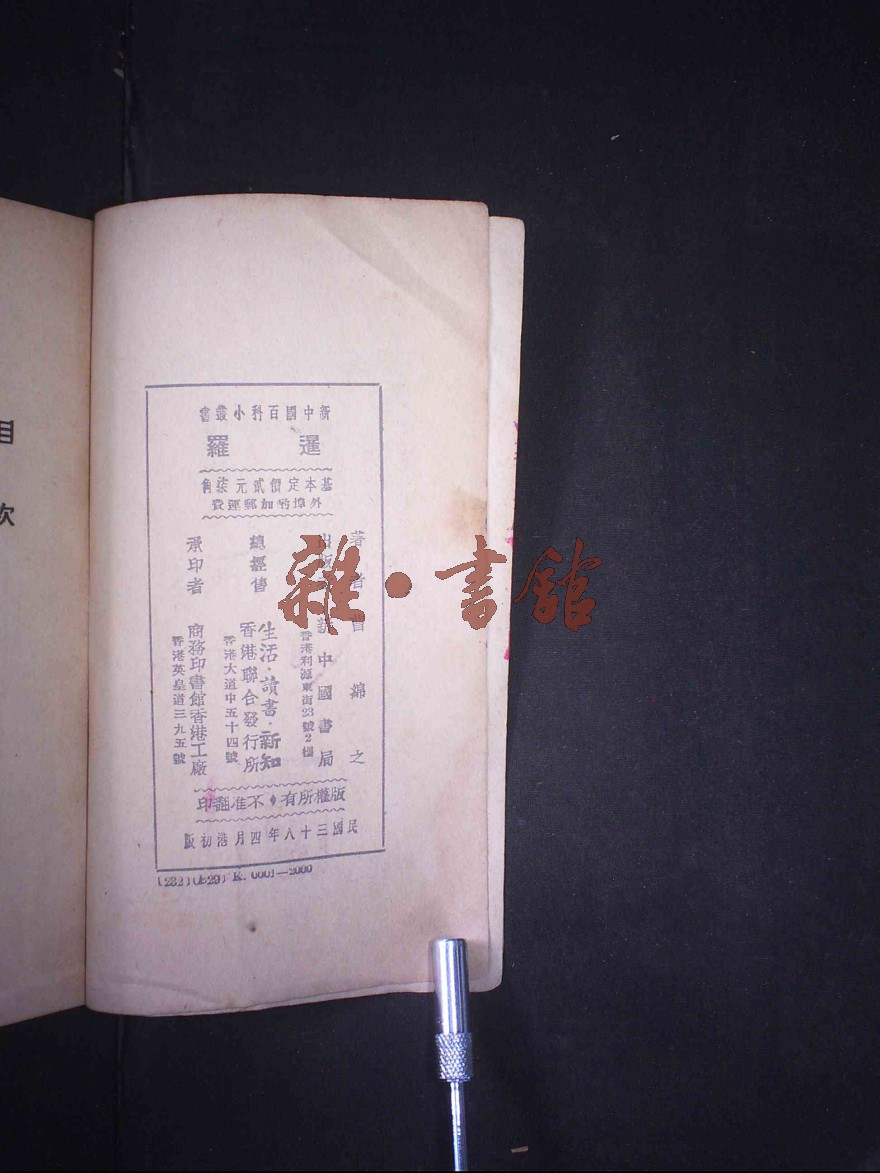 新中國百科小叢書
暹羅
基本定價貳元柒角
外埠酌加郵運費
著者 曹綿之
出版 新中國書局
香港利源東街23號2樓
總經售 生活·讀書·新知
香港聯合發行所
香港大道中五十四號
承印者 商務印書館香港工廠
香港英皇道三九五號
版權所有♦不准翻印
民國三十八年四月港初版
(232)(上29) K. 0001—2000
目次
雜·書館